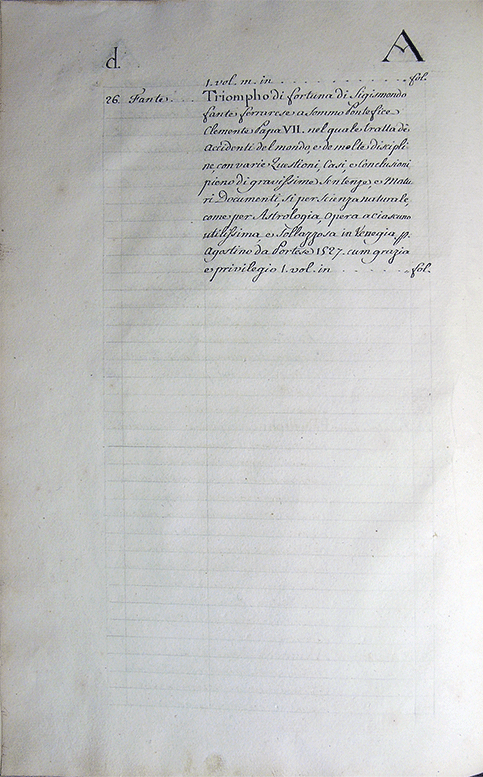 A
d.
1. vol. m. in . . . . . . . . . . . . . . . fol.
26. Fante . . . . Triompho di fortuna di Sigismondo
fante ferrarese a sommo Pontefice
Clemente Papa VII. nel quale tratta de
Accidenti del mondo, e de molte discipli
ne, con varie Questioni, Casi, e Conclusioni
pieno di gravissime Sentenze, e Matu
ri Documenti, si per scienza naturale,
come per Astrologia, Opera a ciascuno
utilissima e Sollazzosa in Venegia pp.
Agostino da Portese 1527. cum grazia
e privilegio 1. vol. in . . . . . . . fol.